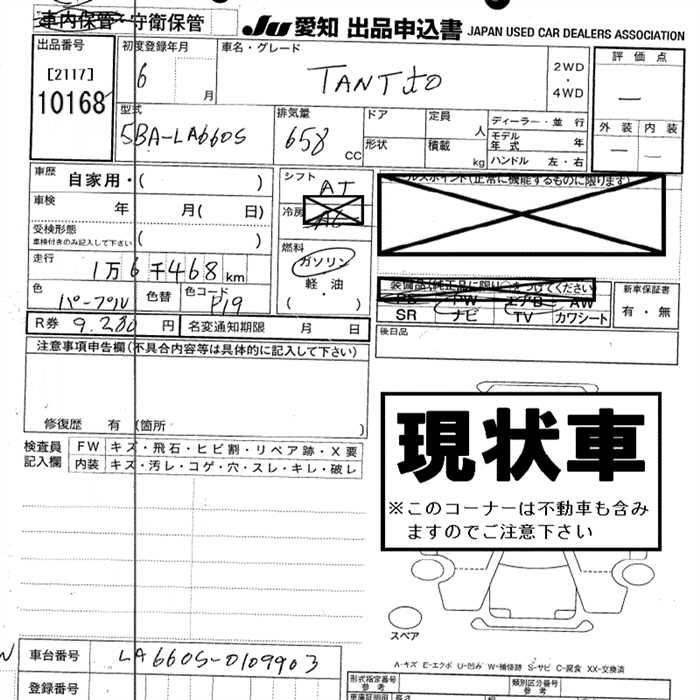 車内保管・守衛保管
JU 愛知 出品申込書 JAPAN USED CAR DEALERS ASSOCIATION
出品番号
[2117]
10168
初度登録年月
6 月
車名・グレード
TANTO
2WD
・
4WD
評価点
—
外装 内装
— —
型式
5BA-LA660S
排気量
658 CC
ドア
定員
人
形状
積載
kg
ディーラー・並行
モデル年式 年
ハンドル 左・右
車歴
自家用・( )
車検
年 月( 日)
受検形態
車検付きのみ記入して下さい ( )
走行
1万6千468km
色
パープル
色替
色コード
P19
シフト
AT
冷房
AC
燃料
ガソリン
軽油
( ・ )
(正常に機能するものに限ります)
装備品(純正品に限り をつけてください)
PS PW エアB AW
SR ナビ TV カワシート
新車保証書
有・無
R券 9.280 円
名変通知期限 月 日
後日品
注意事項申告欄(不具合内容等は具体的に記入して下さい)
修復歴 有 (箇所 )
検査員記入欄
FW キズ・飛石・ヒビ割・リペア跡・X要
内装 キズ・汚レ・コゲ・穴・スレ・キレ・破レ
現状車
※このコーナーは不動車も含み
ますのでご注意下さい
スペア
A-キズ E-エクボ U-凹み W-補修跡 S-サビ C-腐食 XX-交換済
車台番号
LA660S-0109903
登録番号
形式指定番号
参考
類別区分番号
参考
自動車検査証
長さ